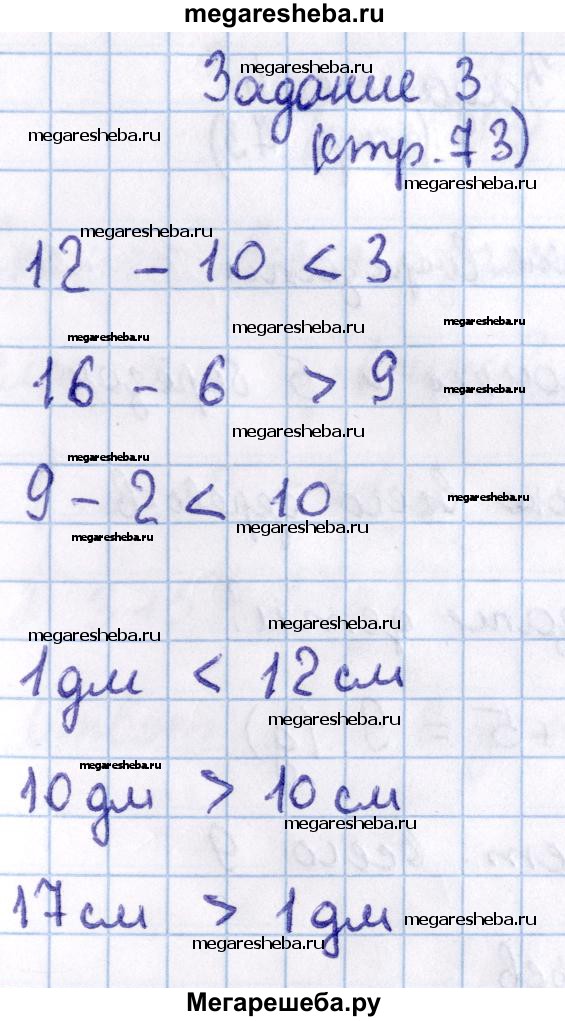 megaresheba.ru
megaresheba.ru
Задание 3
megaresheba.ru
(стр. 73)
megaresheba.ru
megaresheba.ru
12 - 10 < 3
megaresheba.ru
megaresheba.ru
megaresheba.ru
16 - 6 > 9
megaresheba.ru
megaresheba.ru
megaresheba.ru
9 - 2 < 10
megaresheba.ru
megaresheba.ru
megaresheba.ru
megaresheba.ru
megaresheba.ru
1 дм < 12 см
megaresheba.ru
megaresheba.ru
10 дм > 10 см
megaresheba.ru
17 см > 1 дм
megaresheba.ru
megaresheba.ru
Мегарешеба.ру